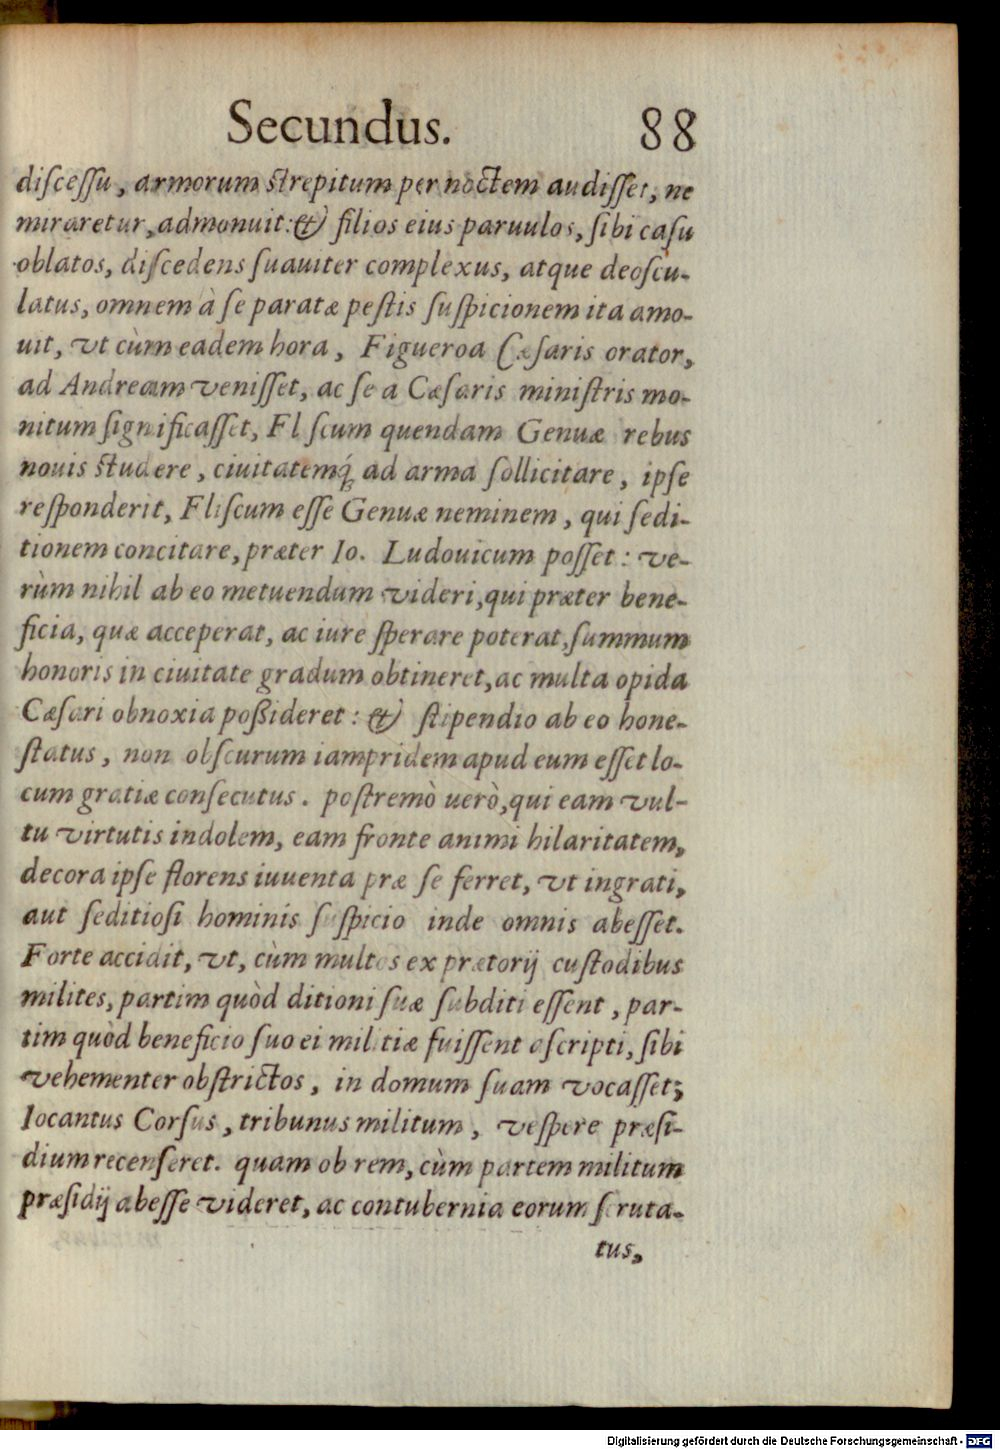 Secundus. 88
discessu, armorum strepitum per noctem audisset, ne
miraretur, admonuit: & filios eius paruulos, sibi casu
oblatos, discedens suauiter complexus, atque deoscu-
latus, omnem à se paratæ pestis suspicionem ita amo-
uit, vt cùm eadem hora, Figueroa Cæsaris orator,
ad Andream venisset, ac se a Cæsaris ministris mo-
nitum significasset, Fl scum quendam Genuæ rebus
nouis studere, ciuitatemq́; ad arma sollicitare, ipse
responderit, Fliscum esse Genuæ neminem, qui sedi-
tionem concitare, præter Io. Ludouicum posset: ve-
rùm nihil ab eo metuendum videri, qui præter bene-
ficia, quæ acceperat, ac iure sperare poterat, summum
honoris in ciuitate gradum obtineret, ac multa opida
Cæsari obnoxia possideret: & stipendio ab eo hone-
status, non obscurum iampridem apud eum esset lo-
cum gratiæ consecutus. postremò uerò, qui eam vul-
tu virtutis indolem, eam fronte animi hilaritatem,
decora ipse florens iuuenta præ se ferret, vt ingrati,
aut seditiosi hominis suspicio inde omnis abesset.
Forte accidit, vt, cùm multos ex prætorij custodibus
milites, partim quòd ditioni suæ subditi essent, par-
tim quòd beneficio suo ei militiæ fuissent ascripti, sibi
vehementer obstrictos, in domum suam vocasset;
Iocantus Corsus, tribunus militum, vespere præsi-
dium recenseret. quam ob rem, cùm partem militum
præsidij abesse videret, ac contubernia eorum scruta-
tus,
Digitalisierung gefördert durch die Deutsche Forschungsgemeinschaft - DFG